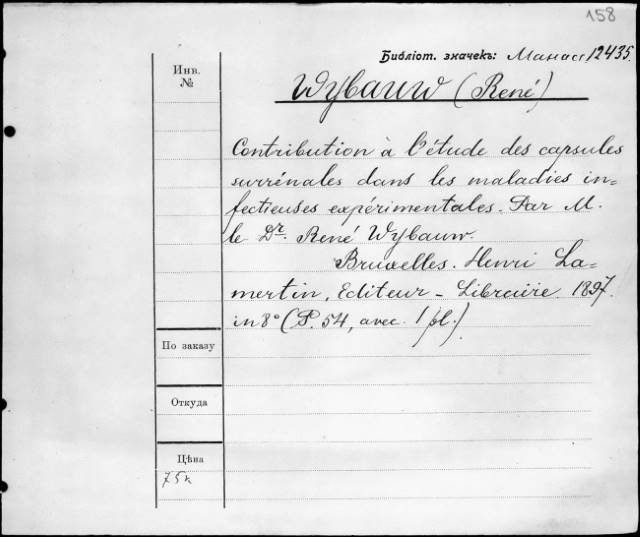 158
Библіот. значекъ: Манасс 12435.
Инв.
№
Wybauw (René)
Contribution à l'étude des capsules
surrénales dans les maladies in=
fectieuses expérimentales. Par M.
le Dr. René Wybauw.
Bruxelles. Henri La=
mertin, Editeur - Libraire. 1897.
in 8° (P. 54, avec. 1 pl.)
По заказу
Откуда
Цѣна
75 к